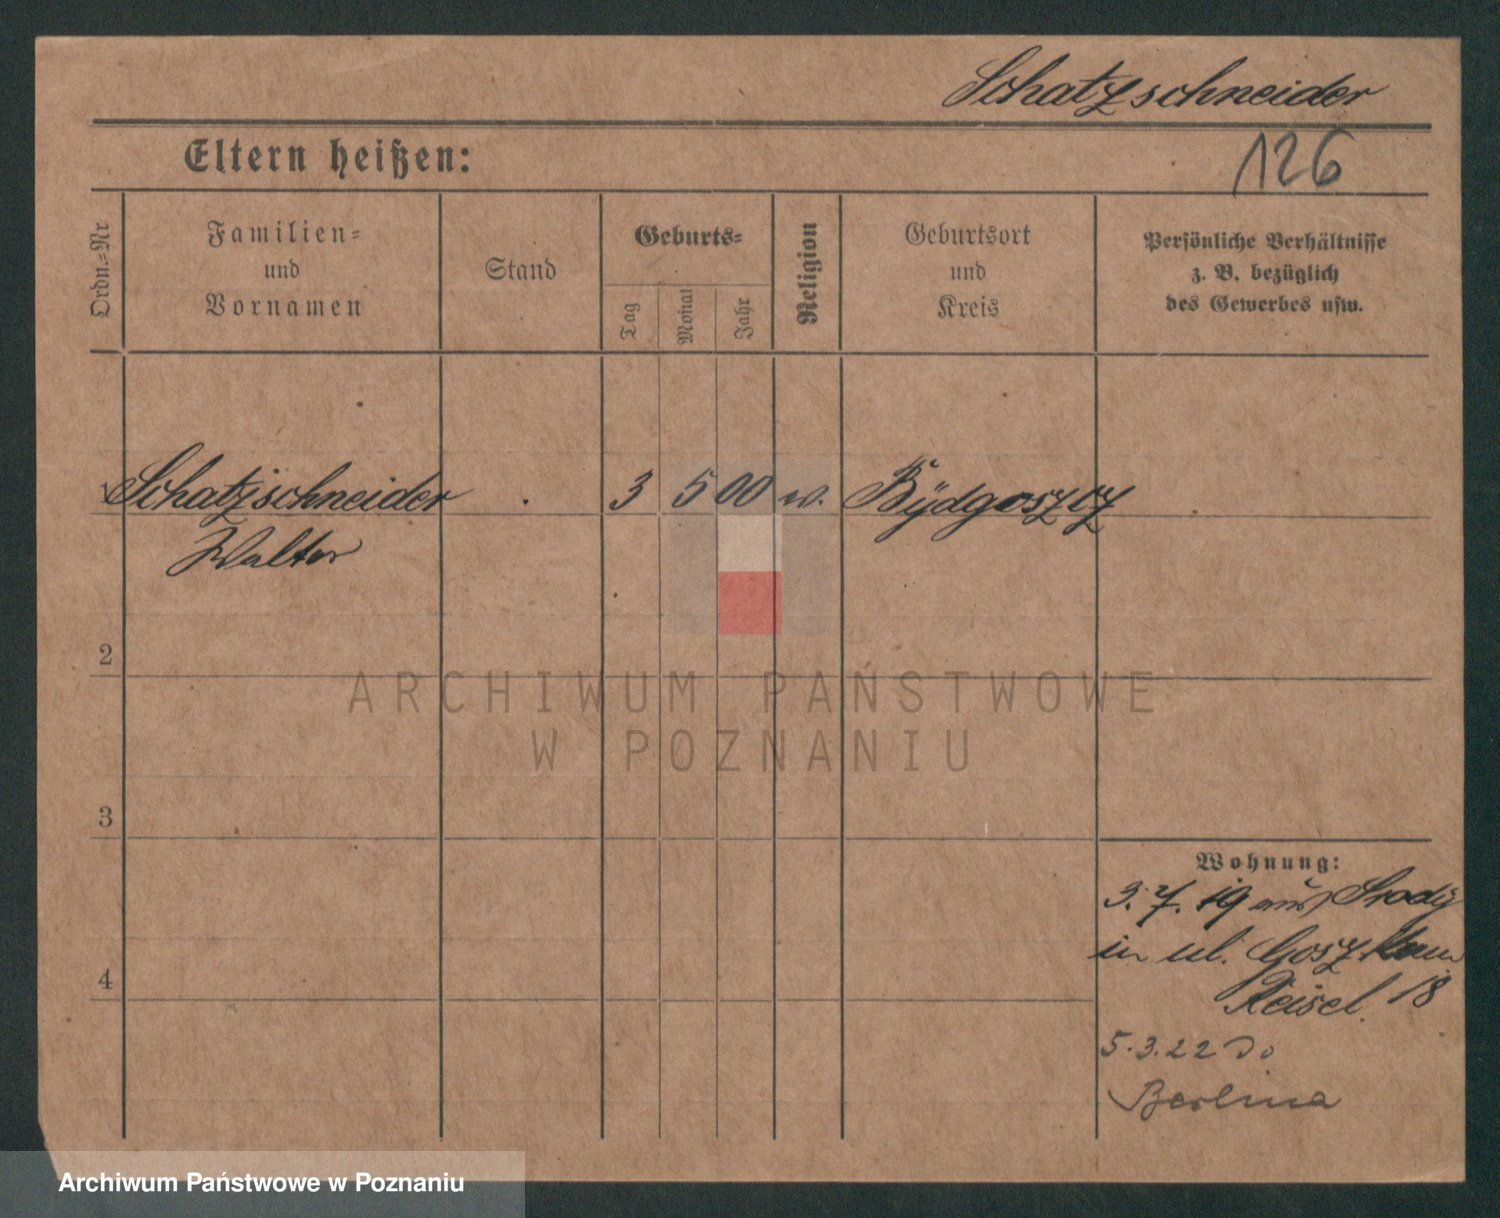 Schatzschneider
Eltern heißen:
126
Ordn.-Nr
Familien-
und
Vornamen
Stand
Geburts-
Tag
Monat
Jahr
Religion
Geburtsort
und
Kreis
Persönliche Verhältnisse
z. B. bezüglich
des Gewerbes usw.
1 Schatzschneider 3 5 00 w. Bydgoszcz
Walter
2
3
4
Wohnung:
3. 7. 19 aus
in ul.
Reisel 18
5.3.22 Do
Berlina
ARCHIWUM PAŃSTWOWE
W POZNANIU
Archiwum Państwowe w Poznaniu